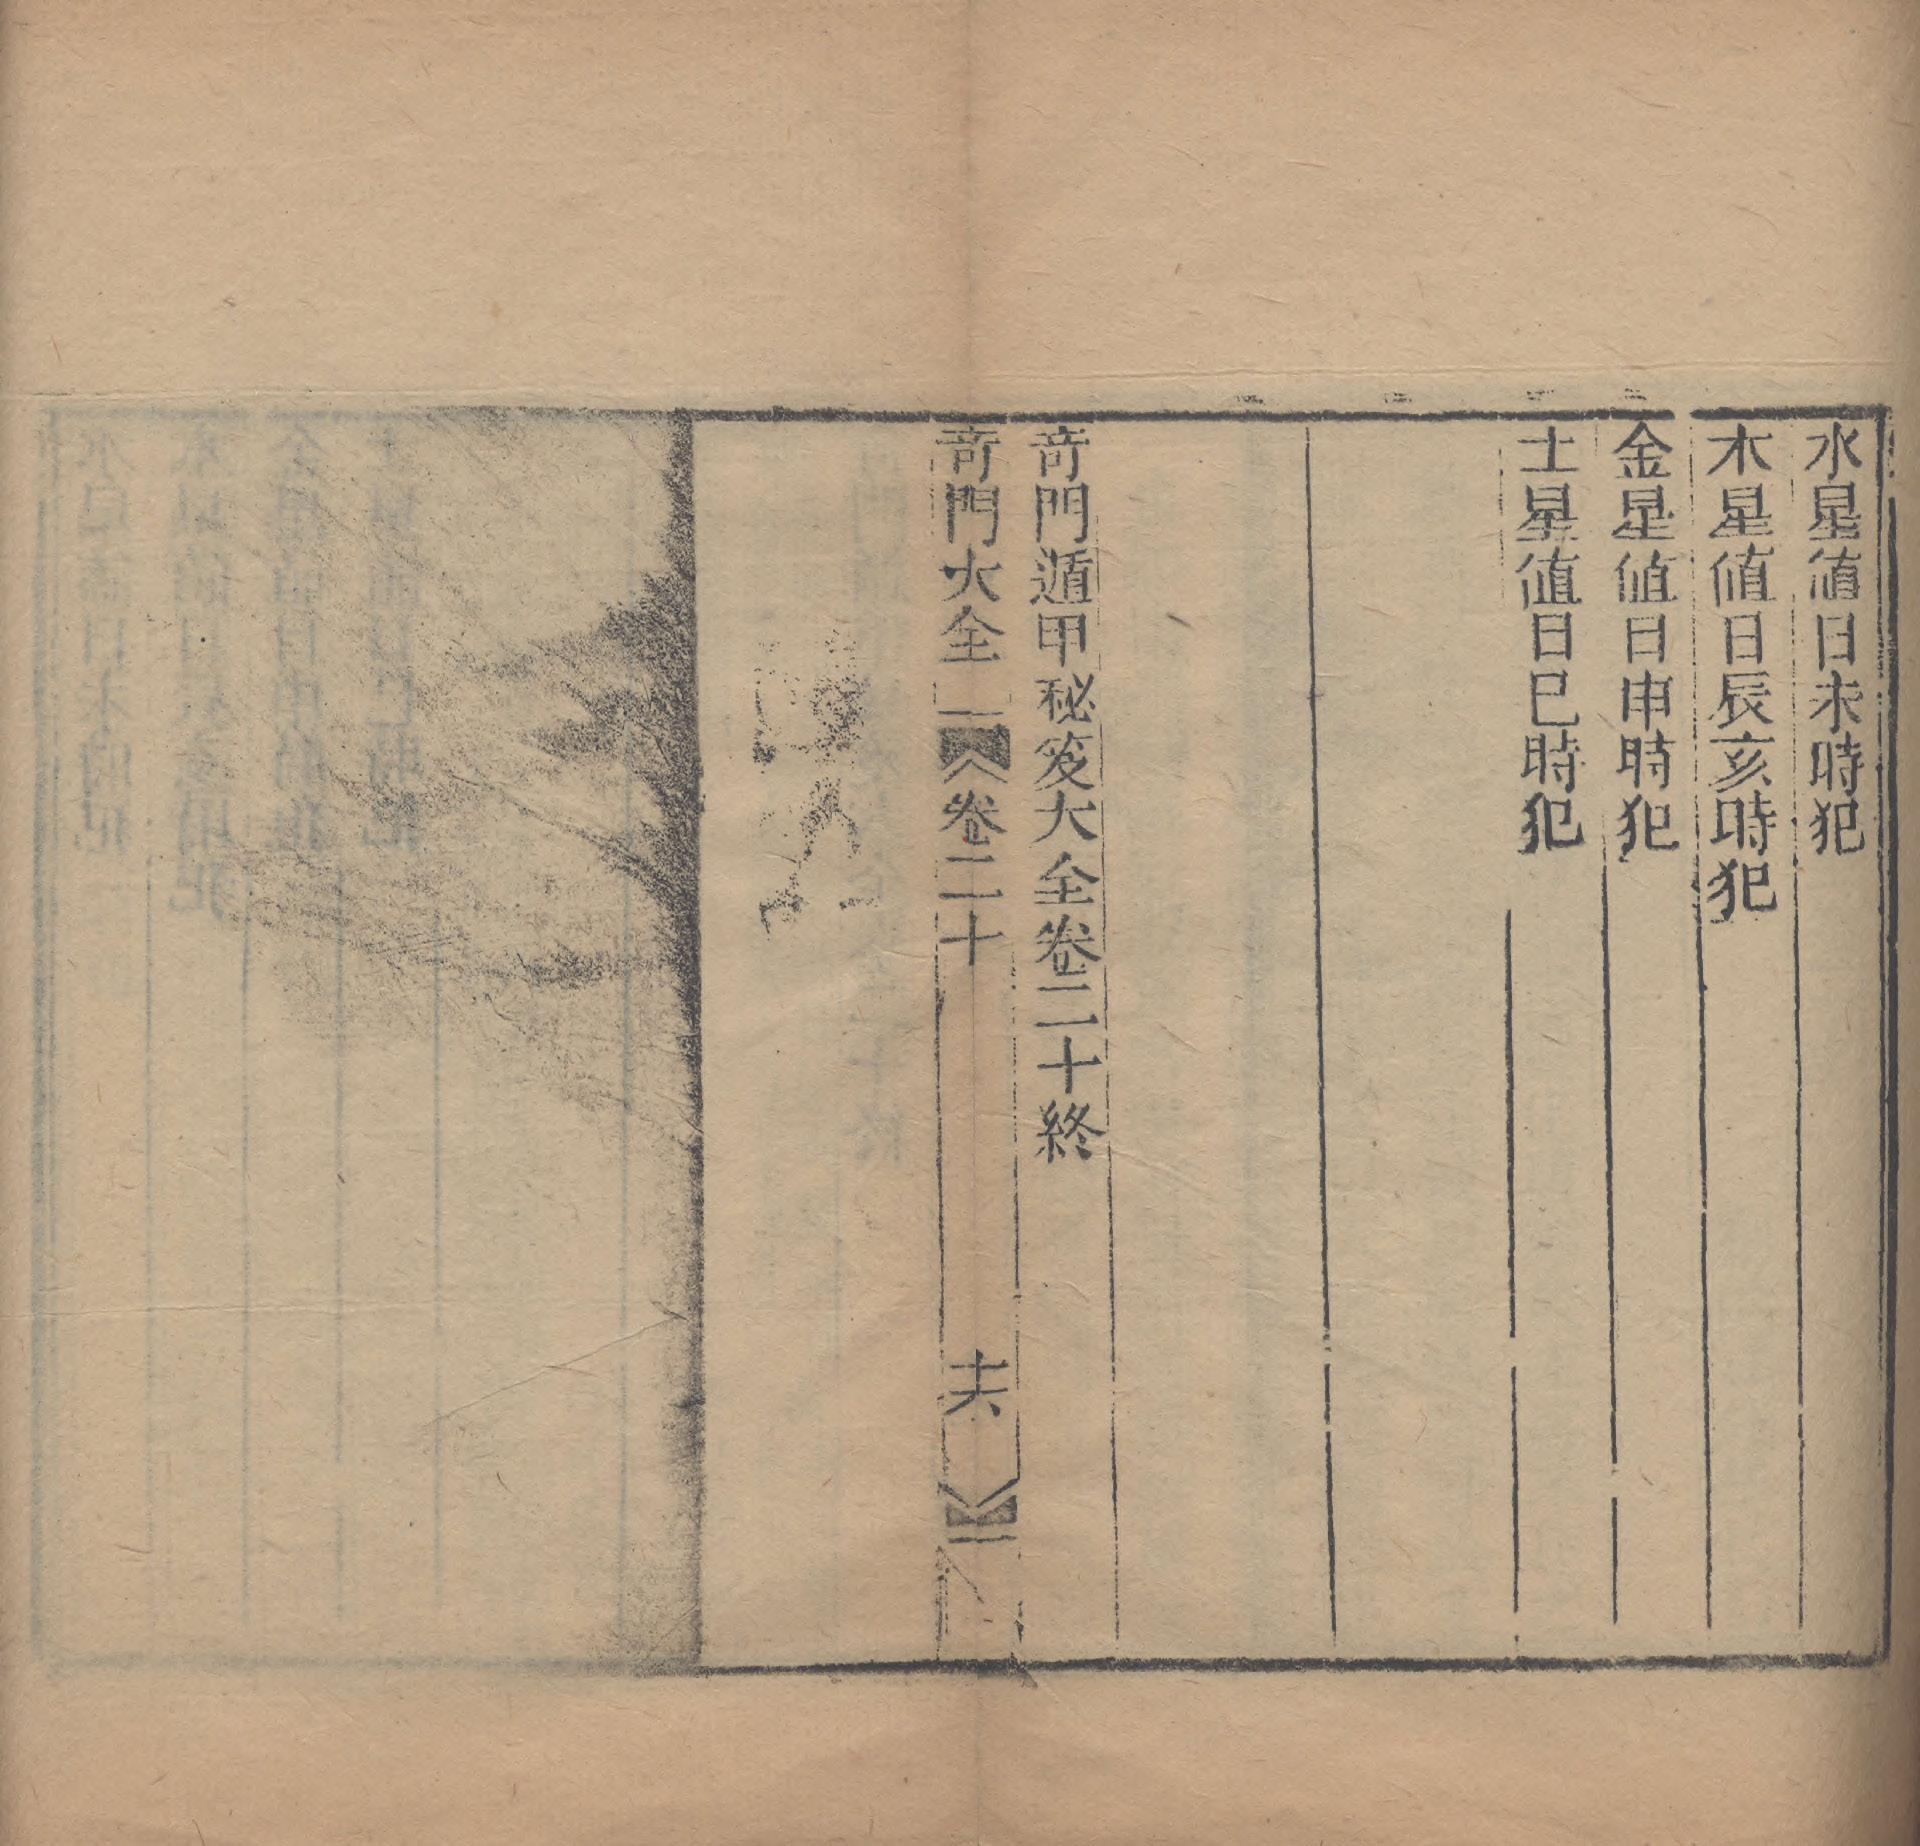 水星値日未時犯
木星値日辰亥時犯
金星値日申時犯
土星値日巳時犯
奇門遁甲秘笈大全卷二十終
奇門大全
卷二十